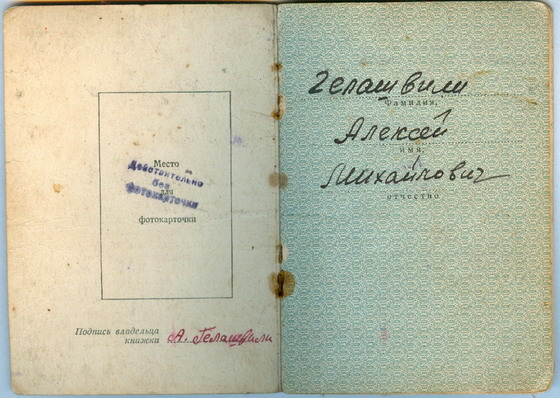 Место
Действительно
без
для
фотокарточки
фотокарточки
Подпись владельца
книжки А. Гелашвили
Гелашвили
Фамилия,
Алексей
имя,
Михайлович
отчество